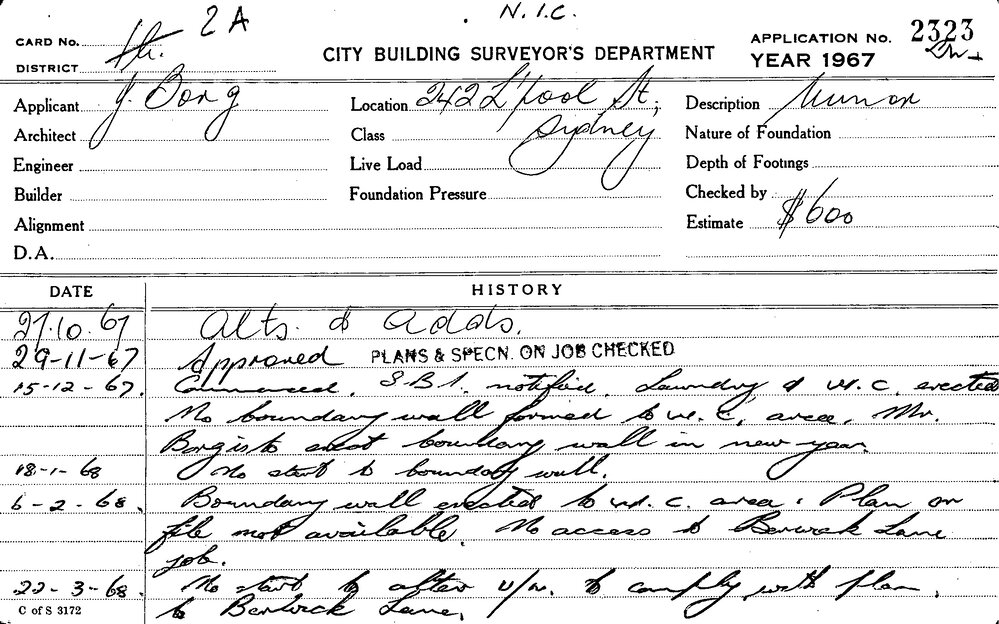 2A
N.I.C.
CARD No.
APPLICATION No. 2323
DISTRICT
CITY BUILDING SURVEYOR'S DEPARTMENT
YEAR 1967
Applicant J. Borg
Location 242 L'pool St,
Description Minor
Architect
Class Sydney
Nature of Foundation
Engineer
Live Load
Depth of Footings
Builder
Foundation Pressure
Checked by
Alignment
Estimate $600
D.A.
DATE
HISTORY
27.10.67 Alts. & Adds.
29-11-67 Approved PLANS & SPECN. ON JOB CHECKED
15-12-67. Commenced. S.B.I. notified. Laundry & W.C. erected
No boundary wall formed to W.C. area. Mr.
Borg is to erect boundary wall in new year.
18-1-68 No start to boundary wall.
6-2-68. Boundary wall erected to W.C. area. Plan on
file not available. No access to Berwick Lane
job.
22-3-68. No start to alter to comply with plan
to Berwick Lane.
C of S 3172